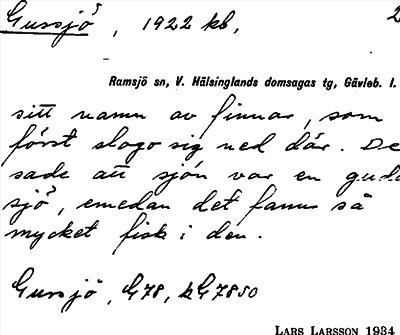 Gussjö, 1922 kb, 2
Ramsjö sn, V. Hälsinglands domsagas tg, Gävleb. l.
sitt namn av finnar, som
först slogo sig ned där. De
sade att sjön var en guds
sjö, emedan det fanns så
mycket fisk i den.
Gussjö, G78, kG7850
LARS LARSSON 1934